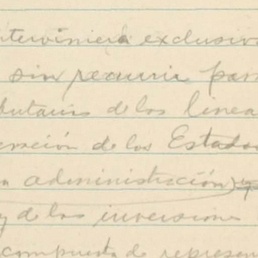 interviniera exclusiva
sin recurrir para
butarias de los linea
eración de los Estado
a administración
y de las inversione
compuesta de represen